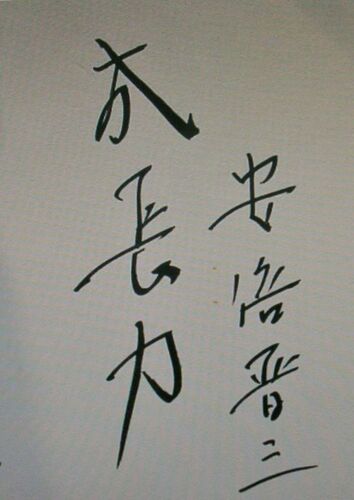 安倍晋三
成長力